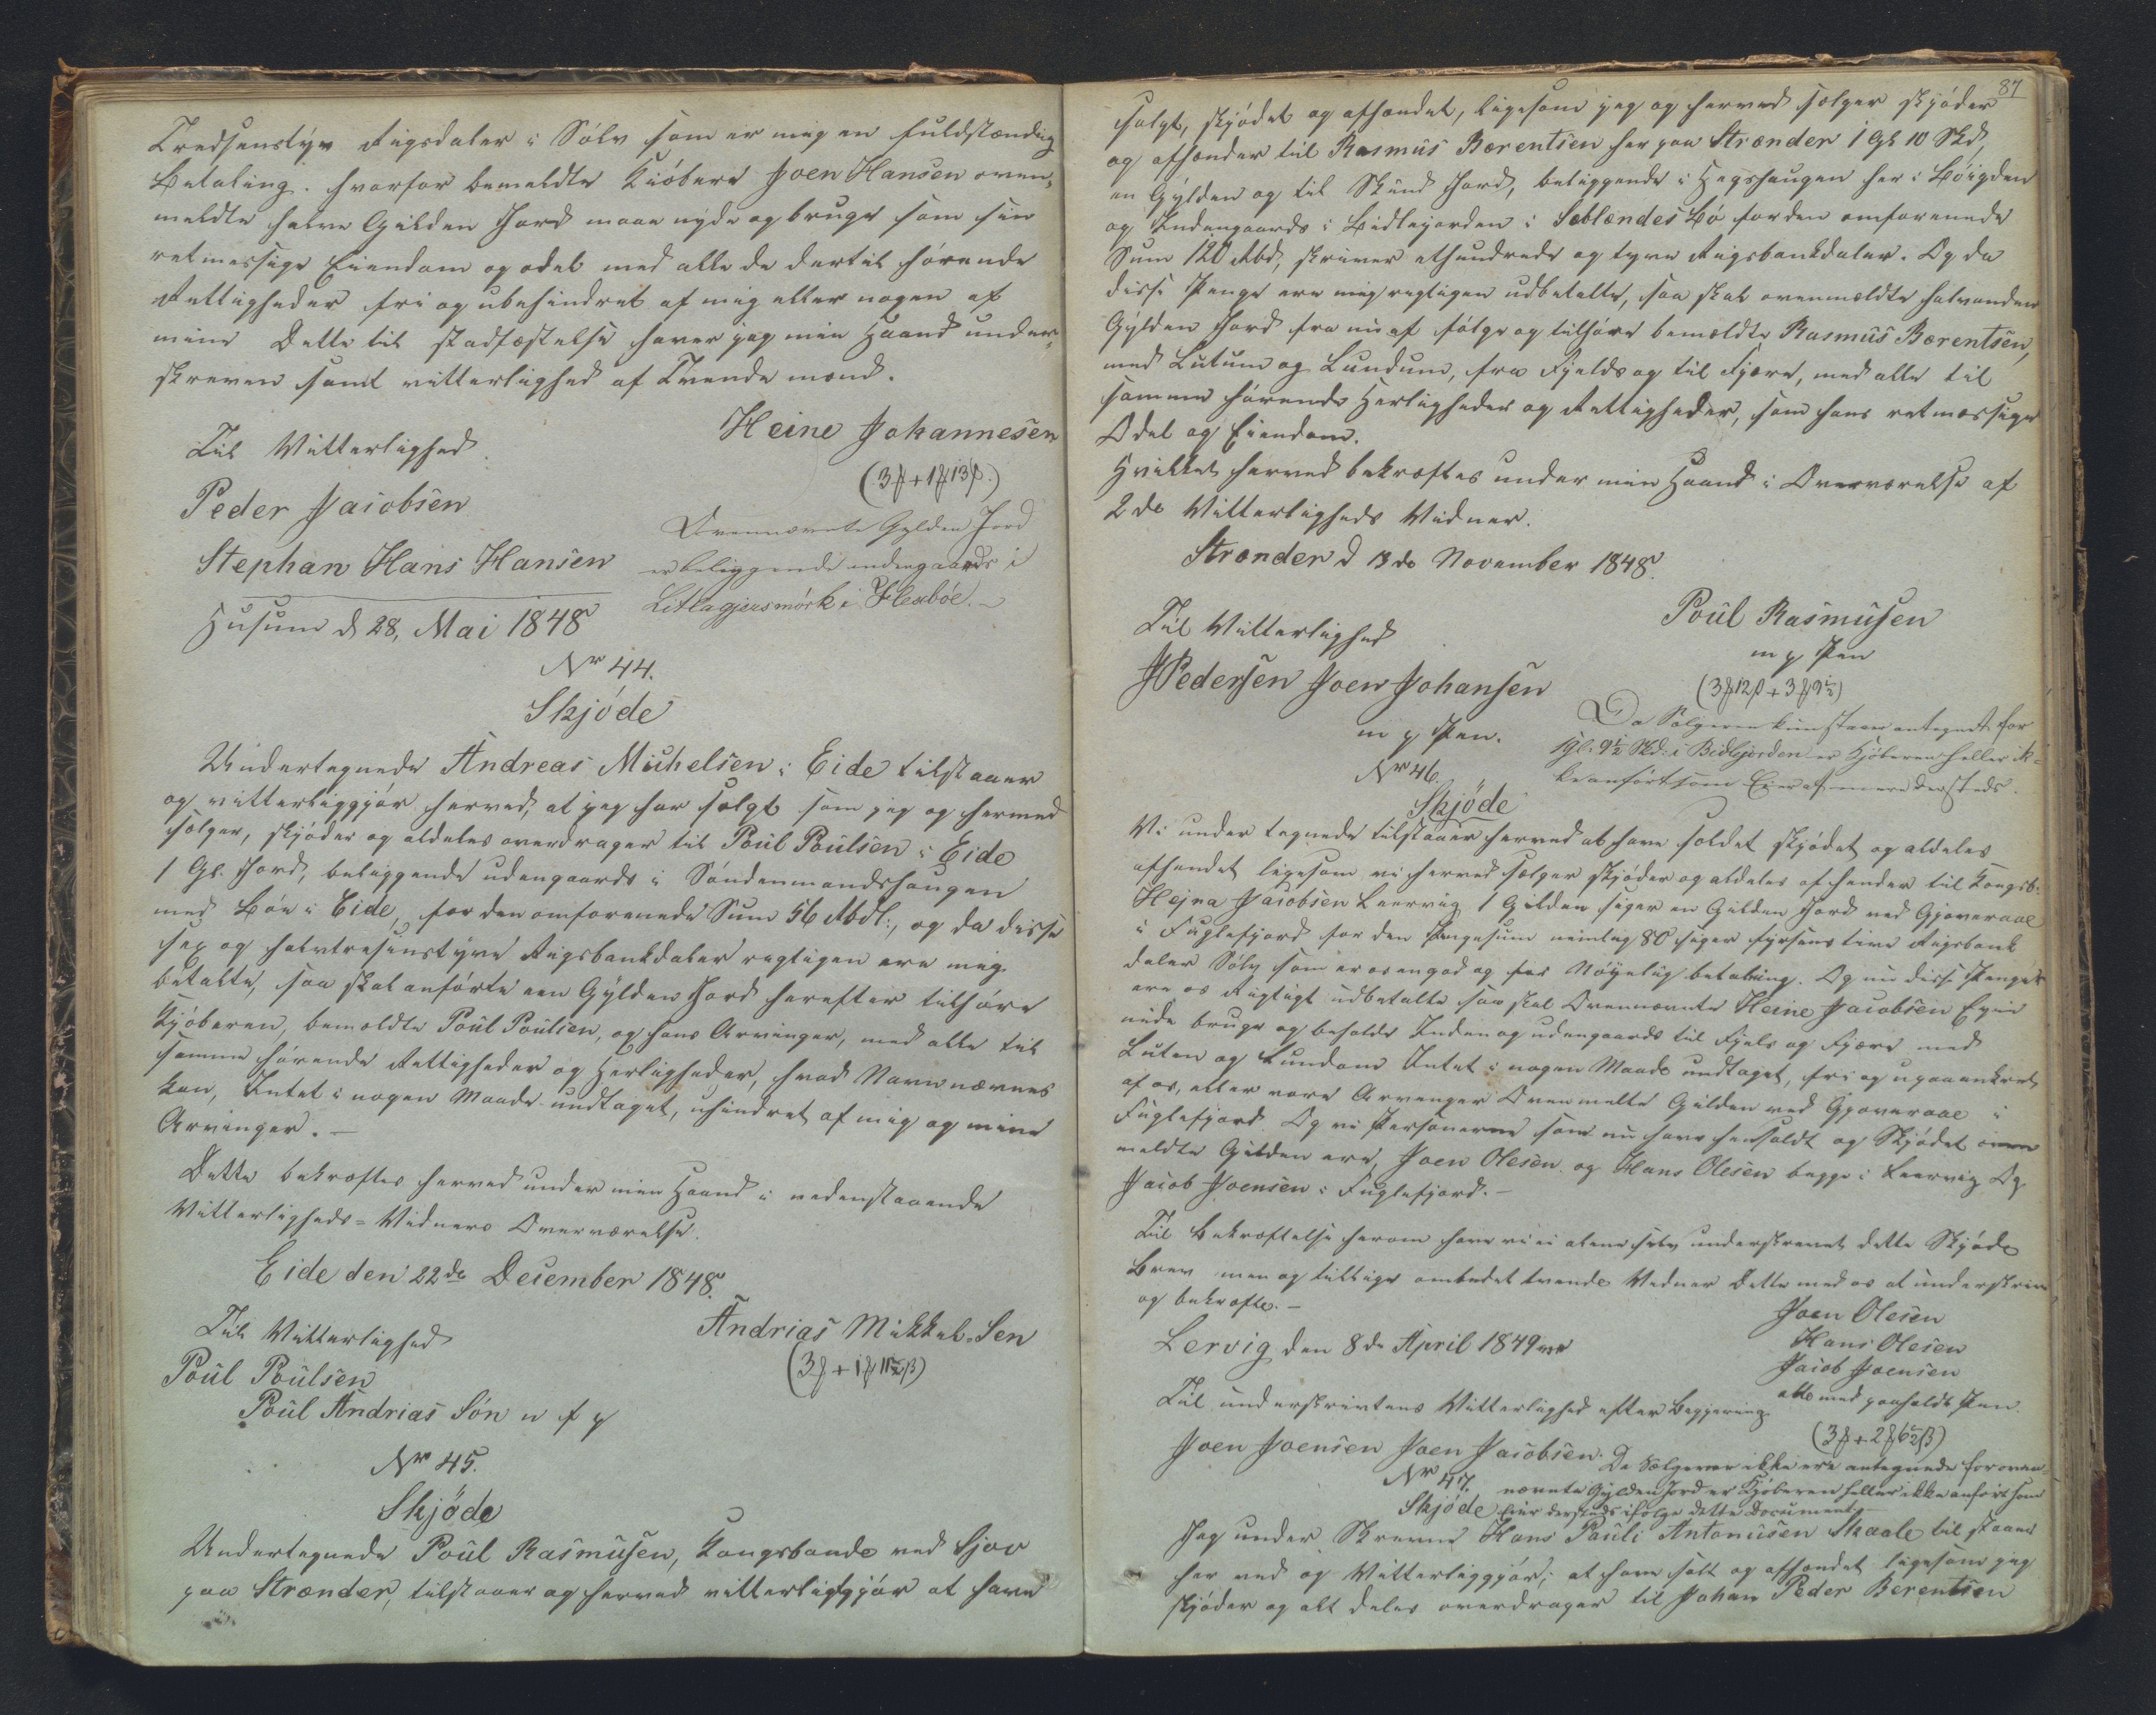 Tredsenstyve Rigsdaler i Sølv som er mig en fuldstændig
Betaling. hvorfor bemeldte Kiøbere Joen Hansen oven-
meldte halve Gilden Jord maae nyde og bruge som sin
retmessige Eiendom og odel med alle de dertil hørende
Rettigheder fri og ubehindret af mig eller nogen af
mine Dette til stadfæstelse haver jeg min Haand under-
skreven samt vitterlighed af Tvende mænd.
Heine Johannesen
Til Vitterlighed.
(3ƒ+1ƒ13ß.)
Peder Jacobsen
Ovennævnte Gylden Jord
Stephan Hans Hansen
er beliggende indengaards i
Litlagjersmørk i Flexbøe.
Husum d 28, Mai 1848
Nr 44.
Skjøde
Undertegnede Andreas Michelsen i Eide tilstaaer
og vitterliggjør herved, at jeg har solgt som jeg og hermed
sælger, skjøder og aldeles overdrager til Poul Poulsen i Eide
1 Gl. Jord, beliggende udengaards i Søndenmandshougen
med Bøn i Eide, for den omforenede Sum 56 Rbdl:, og da disse
sex og halvtresinstyve Rigsbankdaler rigtigen ere mig
betalte, saa skal anførte een Gylden Jord herefter tilhøre
Kjøberen, bemeldte Poul Poulsen, og hans Arvinger, med alle til
samme hørende Rettigheder og Herligheder, hvad Navn nævnes
kan, Intet i nogen Maade undtaget, uhindret af mig og mine
Arvinger. —
Dette bekræftes herved under min Haand i nedenstaaende
Vitterligheds-Vidners Overværelse.
Eide den 22de December 1848.
Til Vitterlighed
Andrias Mikkel-Sen
(3ƒ+1ƒ11½ß)
Poul Poulsen
Poul Andrias Søn
Nr 45.
Skjøde
Undertegnede Poul Rasmusen, Kongsbonde ved Sjov
paa Strænder, tilstaaer og herved vitterliggjør at have
87
solgt, skjødet og afhændet, ligesom jeg og herved sælger skjøder
og afhænder til Rasmus Bærentsen her paa Strænder 1 Gl 10 Skd,
en Gylden og til Skind Jord, beliggende i Hegshaugen her i Bøigden
og Indengaards i Bidlejorden i Selelændes Bø for den omforenede
Sum 120 Rbd, skriver ethundrede og tyve Rigsbankdaler. Og da
disse Penge ere mig rigtigen udbetalte, saa skal ovenmeldte halvanden
Gylden Jord fra nu af følge og tilhøre bemeldte Rasmus Bærentsen,
med Lutum og Lundum, fra Fjelds og til Fjære, med alle til
samme hørende Herligheder og Rettigheder, som hans retmæssige
Odel og Eiendom.
Hvilket herved bekræftes under min Haand i Overværelse af
2de Vitterligheds Vidner.
Strænder d 13de November 1848.
Til Vitterlighed
Poul Rasmusen
m p Pen
JPedersen Joen Johansen
(3ƒ12ß+3ƒ9½)
m p Pen.
Da Sælgeren kun staaer antegnet for
1Gl. 9½ Skd: i Bidlejorden er Kjøberen heller ik-
ke anført som Eier af mere dersteds.
Nr 46.
Skjøde
Vi under tegnede tilstaaer herved at have soldet skjødet og aldeles
afhendet ligesom vi herved sælger skjøder og aldeles af hender til Kongsb:
Hejna Jacobsen Leervig 1 Gilden siger en Gilden Jord ved Gjoveraae
i Fuglefjord for den Pengesum neimlig 80 siger fyrsens tive Rigsbank
daler Sølv som er os en god og for Nøyelig betaling. Og nu disse Penger
ere os Rigtigt udbetalte saa skal Ovennævnte Heine Jacobsen Eyie
nide bruge og beholde Inden og udengaards til Fjels og Fjære med
Luten og Lundom Intet i nogen Maade undtaget, fri og upaaanket
af os, eller vore Arvenger Ovenmelte Gilden ved Gjoveraae i
Fuglefjord. Og vi Personerne som nu have hensoldt og Skjødet oven
meldte Gilden ere, Joen Olesen og Hans Olesen begge i Leervig Og
Jacob Joensen i Fuglefjord. —
Til Bekræftelse herom have vi ei alene selv underskrevet dette Skjøde
Brev men og tillige ombedet tvende Vedner Dette med os at underskrive
og bekræfte. —
Joen Olesen
Lervig den 8de April 1849
Hans Olesen
Jacob Joensen
alle med paaholdt Pen.
Til underskrivtens Vitterlighed efter Begjering
(3ƒ+2ƒ6½ß)
Joen Joensen Joen Jacobsen.
De Sælgerne ikke ere antegnede for oven-
Nr 47.
nævnte Gylden Jord er Kjøberen heller ikke anført som
Skjøde
Eier dersteds ifølge dette Document.
Jeg under Skrevne Hans Pauli Antoniusen Skaale til staaer
her ved og Vitterliggjør; at have solt og afhændet ligesom jeg
skjøder og alt deles overdrager til Johan Peder Berentsen